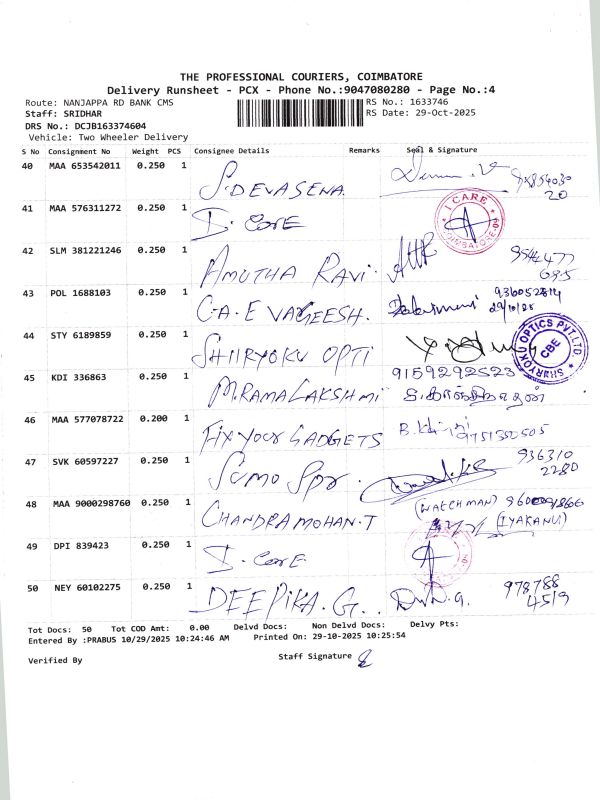 THE PROFESSIONAL COURIERS, COIMBATORE
Delivery Runsheet - PCX - Phone No.:9047080280 - Page No.:4
Route: NANJAPPA RD BANK CMS
RS No.: 1633746
Staff: SRIDHAR
RS Date: 29-Oct-2025
DRS No.: DCJB163374604
Vehicle: Two Wheeler Delivery
S No Consignment No Weight PCS Consignee Details Remarks Seal & Signature
40 MAA 653542011 0.250 1 S.DEVASENA
41 MAA 576311272 0.250 1 I. CORE I CARE COIMBATORE
42 SLM 381221246 0.250 1 AMUTHA RAVI.
43 POL 1688103 0.250 1 C.A.E VAGEESH. 29/10/25
44 STY 6189859 0.250 1 SHIIRYOKU OPTI SHIIRYOKU OPTICS PVT LTD CBE
45 KDI 336863 0.250 1 M.RAMALAKSHMI 9159292523
46 MAA 577078722 0.200 1 FIX YOUR GADGETS
47 SVK 60597227 0.250 1 936310 2280
48 MAA 9000298760 0.250 1 CHANDRAMOHAN.T (WATCHMAN)
(IYAKANU)
49 DPI 839423 0.250 1 I. CORE
50 NEY 60102275 0.250 1 DEEPIKA.G. 978788
4519
Tot Docs: 50 Tot COD Amt: 0.00 Delvd Docs: Non Delvd Docs: Delvy Pts:
Entered By :PRABUS 10/29/2025 10:24:46 AM Printed On: 29-10-2025 10:25:54
Verified By Staff Signature